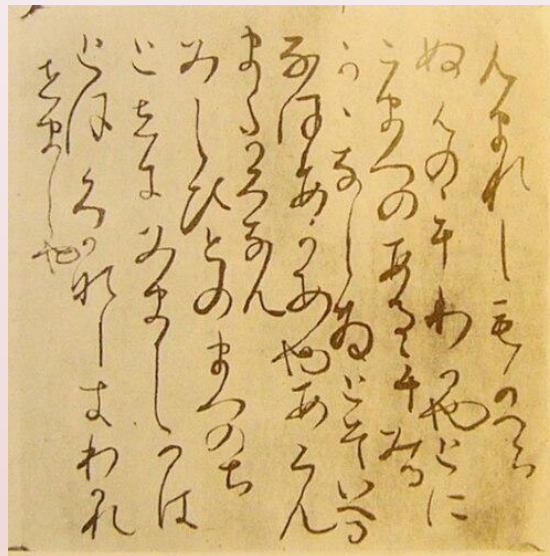 むまれしもかへら
ぬものをわかやとに
こまつのあるをみる
かゝなしさとそいへる
なほあかすやあらん
またかくなん
みしひとのまつのち
とせにみましかは
とほくかなしきわかれ
せましや